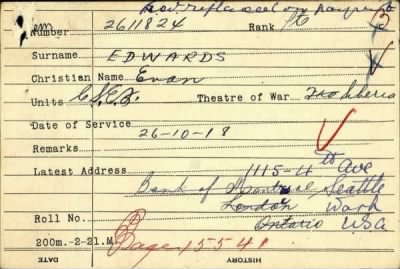 now replaced on payment
Number 2611824 Rank Pte
Surname EDWARDS
Christian Name Evan
Units C.S.E.F. Theatre of War Siberia
Date of Service
26-10-18
Remarks
Latest Address 1115-4th Ave
Bank of Montreal, Seattle
London Wash
Roll No. Ontario USA
200m.-2-21.M. Page 15541
DATE HISTORY